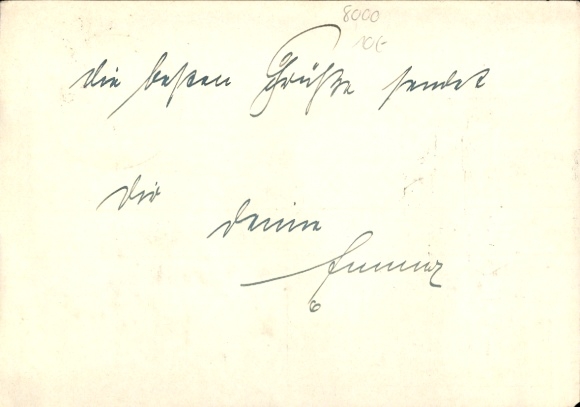 8000
10€
Die besten Grüße sendet
Dir
Deine